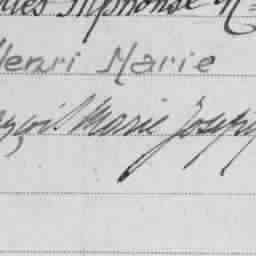 Alphonse M
Henri Marie
Marie Joseph